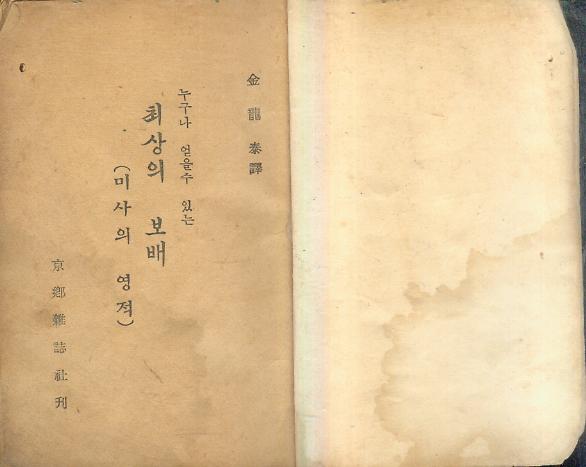 金龍泰譯
누구나 얻을수 있는
최상의 보배
(미사의 영적)
京鄕雜誌社刊